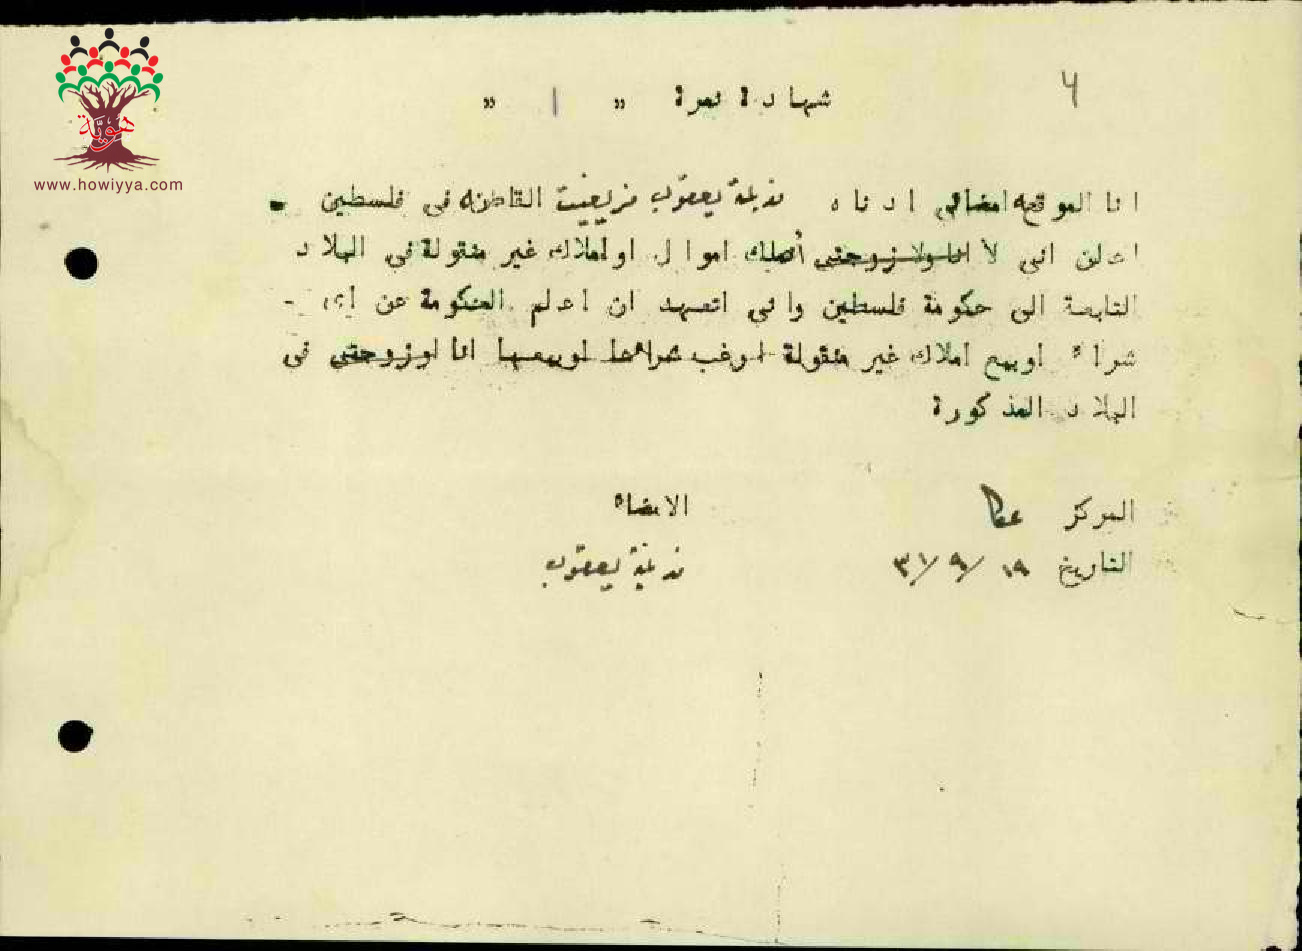 هويّة
www.howiyya.com
٤
شهادة نمرة " ١ "
انا الموقعه امضائي ادناه يعقوب القاطنه في فلسطين
اعلن اني لا انا ولا زوجتي أملك اموال او املاك غير منقولة في البلاد
التابعة الى حكومة فلسطين واني اتعهد ان اعلم الحكومة عن أي -
شراء او بيع املاك غير منقولة ارغب شراءها او بيعها انا او زوجتي في
البلاد المذكورة
المركز عكا
الامضاء
التاريخ ١٩/٩/٣١
يعقوب